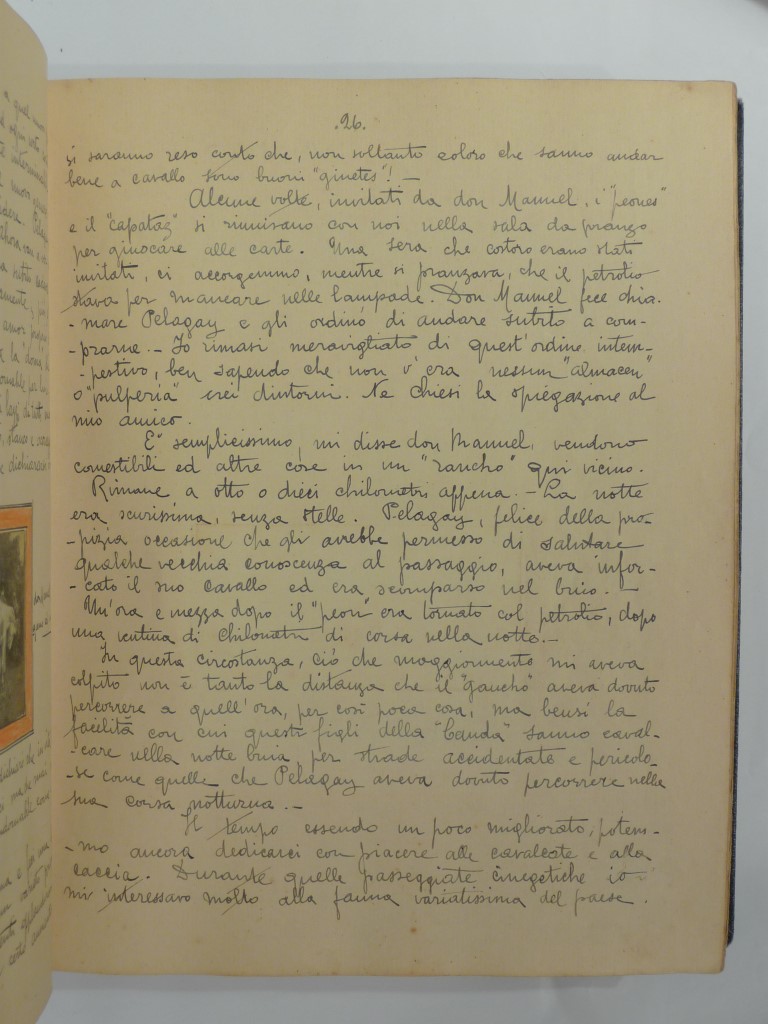 .26.
si saranno reso conto che, non soltanto coloro che sanno andar
bene a cavallo sono buoni "ginetes"! —
Alcune volte, invitati da don Manuel, i "peones"
e il "capataz" si riunivano con noi nella sala da pranzo
per giuocare alle carte. Una sera che costoro erano stati
invitati, ci accorgemmo, mentre si pranzava, che il petrolio
stava per mancare nelle lampade. Don Manuel fece chia-
-mare Pelagay e gli ordinó di andare subito a com-
-prarne. — Io rimasi meravigliato di quest'ordine intem-
-pestivo, ben sapendo che non v'era nessun "almacen"
o "pulperia" nei dintorni. Ne chiesi la spiegazione al
mio amico.
E' semplicissimo, mi disse don Manuel, vendono
comestibili ed altre cose in un "rancho" qui vicino.
Rimane a otto o dieci chilometri appena. — La notte
era scurissima, senza stelle. Pelagay, felice della pro-
-pizia occasione che gli avrebbe permesso di salutare
qualche vecchia conoscenza al passaggio, aveva infor-
-cato il suo cavallo ed era scomparso nel buio. —
Un'ora e mezza dopo il "peon" era tornato col petrolio, dopo
una ventina di chilometri di corsa nella notte. —
In questa circostanza, ció che maggiormente mi aveva
colpito non é tanto la distanza che il "gaucho" aveva dovuto
percorrere a quell'ora, per cosí poca cosa, ma bensí la
facilitá con cui questi figli della "banda" sanno caval-
-care nella notte buia, per strade accidentate e pericolo-
-se come quelle che Pelagay aveva dovuto percorrere nella
sua corsa notturna. —
Il tempo essendo un poco migliorato, potem-
-mo ancora dedicarci con piacere alle cavalcate e alla
caccia. Durante quelle passeggiate cinegetiche io
mi interessavo molto alla fauna variatissima del paese.